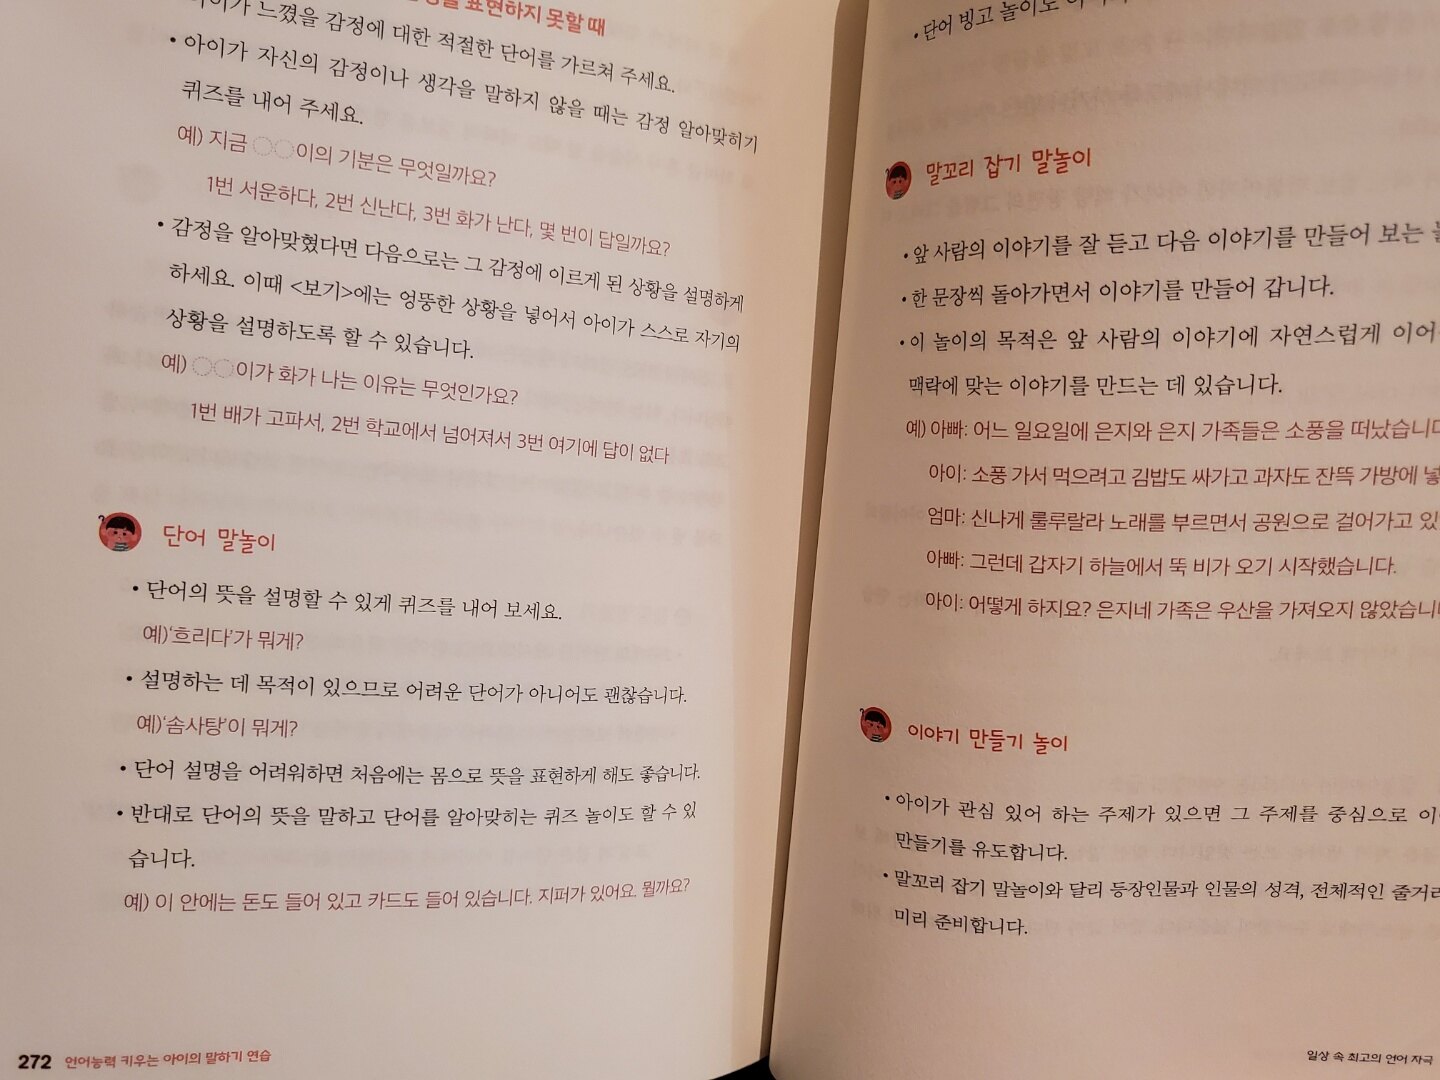 표현하지 못할 때
느꼈을 감정에 대한 적절한 단어를 가르쳐 주세요.
• 아이가 자신의 감정이나 생각을 말하지 않을 때는 감정 알아맞히기
퀴즈를 내어 주세요.
예) 지금 ○○이의 기분은 무엇일까요?
1번 서운하다, 2번 신난다, 3번 화가 난다, 몇 번이 답일까요?
• 감정을 알아맞혔다면 다음으로는 그 감정에 이르게 된 상황을 설명하게
하세요. 이때 <보기>에는 엉뚱한 상황을 넣어서 아이가 스스로 자기의
상황을 설명하도록 할 수 있습니다.
예) ○○이가 화가 나는 이유는 무엇인가요?
1번 배가 고파서, 2번 학교에서 넘어져서 3번 여기에 답이 없다
단어 말놀이
• 단어의 뜻을 설명할 수 있게 퀴즈를 내어 보세요.
예)‘흐리다’가 뭐게?
• 설명하는 데 목적이 있으므로 어려운 단어가 아니어도 괜찮습니다.
예)‘솜사탕’이 뭐게?
• 단어 설명을 어려워하면 처음에는 몸으로 뜻을 표현하게 해도 좋습니다.
• 반대로 단어의 뜻을 말하고 단어를 알아맞히는 퀴즈 놀이도 할 수 있
습니다.
예) 이 안에는 돈도 들어 있고 카드도 들어 있습니다. 지퍼가 있어요. 뭘까요?
272 언어능력 키우는 아이의 말하기 연습
• 단어 빙고 놀이도
말꼬리 잡기 말놀이
• 앞 사람의 이야기를 잘 듣고 다음 이야기를 만들어 보는
• 한 문장씩 돌아가면서 이야기를 만들어 갑니다.
• 이 놀이의 목적은 앞 사람의 이야기에 자연스럽게 이어
맥락에 맞는 이야기를 만드는 데 있습니다.
예) 아빠: 어느 일요일에 은지와 은지 가족들은 소풍을 떠났습니
아이: 소풍 가서 먹으려고 김밥도 싸가고 과자도 잔뜩 가방에
엄마: 신나게 룰루랄라 노래를 부르면서 공원으로 걸어가고 있
아빠: 그런데 갑자기 하늘에서 뚝 비가 오기 시작했습니다.
아이: 어떻게 하지요? 은지네 가족은 우산을 가져오지 않았습니
이야기 만들기 놀이
• 아이가 관심 있어 하는 주제가 있으면 그 주제를 중심으로
만들기를 유도합니다.
• 말꼬리 잡기 말놀이와 달리 등장인물과 인물의 성격, 전체적인 줄거
미리 준비합니다.
일상 속 최고의 언어 자극